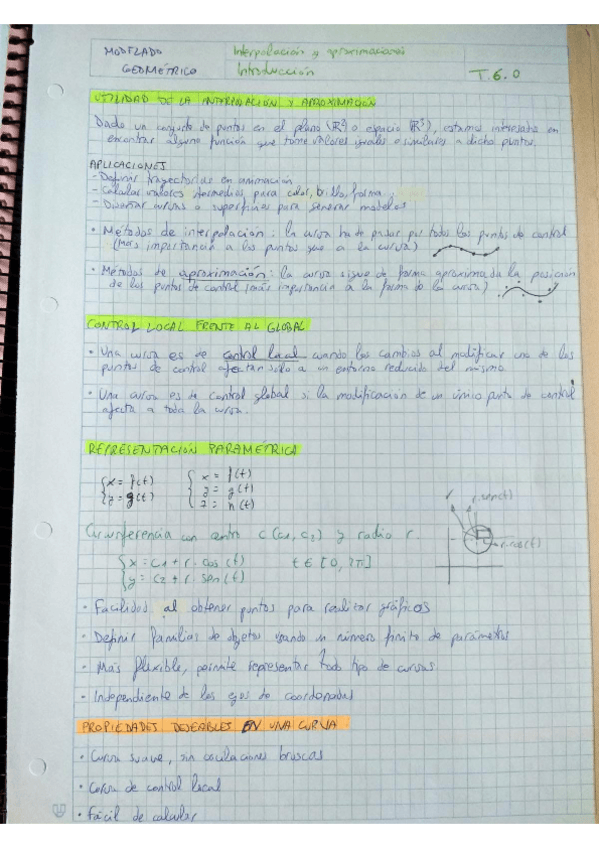 MODELADO
GEOMÉTRICO
Interpolación y aproximaciones
Introducción
T.6.0
UTILIDAD DE LA INTERPOLACIÓN Y APROXIMACIÓN
Dado un conjunto de puntos en el plano (R²) o espacio (R³), estamos interesados en
encontrar alguna función que tome valores iguales o similares a dichos puntos.
APLICACIONES
- Definir trayectorias en animación
- Calcular valores intermedios para color, brillo, forma
- Diseñar curvas o superficies para generar modelos
• Métodos de interpolación: la curva ha de pasar por todos los puntos de control
(más importancia a los puntos que a la curva)
• Métodos de aproximación: la curva sigue de forma aproximada la posición
de los puntos de control (más importancia a la forma de la curva)
CONTROL LOCAL FRENTE AL GLOBAL
• Una curva es de control local cuando los cambios al modificar uno de los
puntos de control afectan sólo a un entorno reducido del mismo
• Una curva es de control global si la modificación de un único punto de control
afecta a toda la curva.
REPRESENTACIÓN PARAMÉTRICA
x = f(t)
y = g(t)
x = f(t)
y = g(t)
z = h(t)
r
r.sen(t)
r.cos(t)
Circunferencia con centro c(c1, c2) y radio r.
x = c1 + r · cos(t)
y = c2 + r · sen(t)
t ∈ [0, 2π]
• Facilidad al obtener puntos para realizar gráficos
• Definir familias de objetos usando un número finito de parámetros
• Más flexible, permite representar todo tipo de curvas
• Independiente de los ejes de coordenadas
PROPIEDADES DESEABLES EN UNA CURVA
• Curva suave, sin oscilaciones bruscas
• Curva de control local
• Fácil de calcular